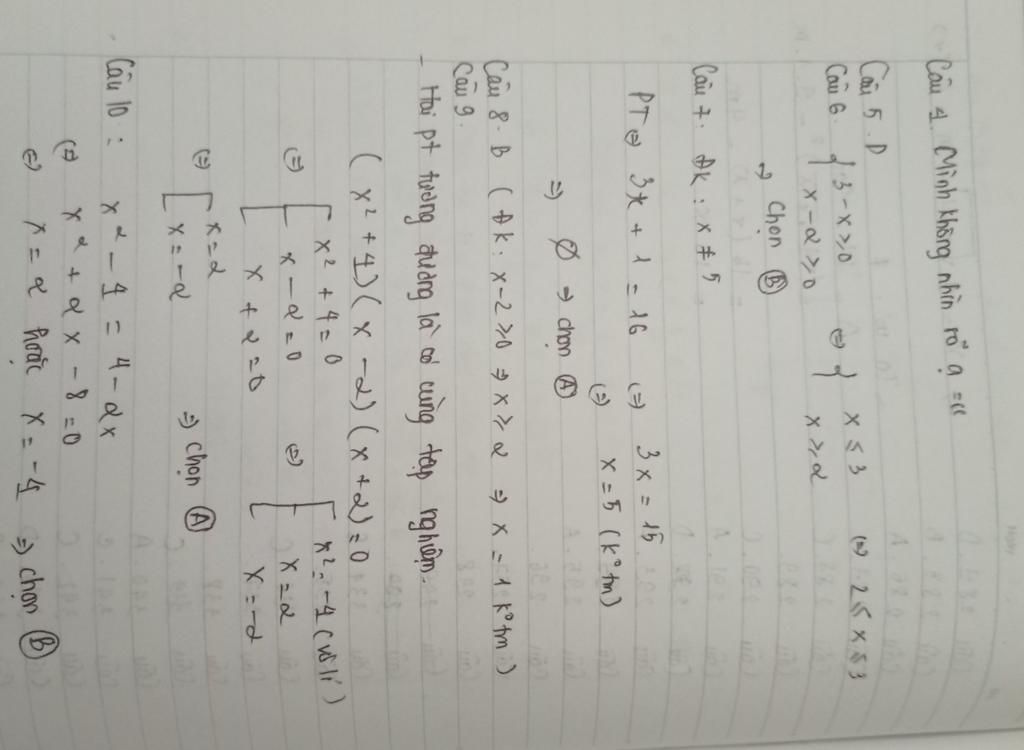 Câu 4. Mình không nhìn rõ ạ =((
Câu 5. D
Câu 6. { 3-x ≥ 0 ⇔ { x ≤ 3 ⇔ 2 ≤ x ≤ 3
x-2 ≥ 0 x ≥ 2
→ Chọn Ⓑ
Câu 7. Đk : x ≠ 5
PT ⇔ 3x + 1 = 16 ⇔ 3x = 15
⇔ x = 5 (k° tm)
⇒ ∅ ⇒ chọn Ⓐ
Câu 8. B ( Đk: x-2 ≥ 0 ⇒ x ≥ 2 ⇒ x = 1 k° tm )
Câu 9.
- Hai pt tương đương là có cùng tập nghiệm.
(x² + 4)(x - 2)(x + 2) = 0
⇔ [ x² + 4 = 0 ⇔ [ x² = -4 (vô lí)
x - 2 = 0 x = 2
x + 2 = 0 x = -2
⇔ [ x = 2
x = -2 ⇒ chọn Ⓐ
Câu 10 : x² - 4 = 4 - 2x
⇔ x² + 2x - 8 = 0
⇔ x = 2 hoặc x = -4 ⇒ chọn Ⓑ